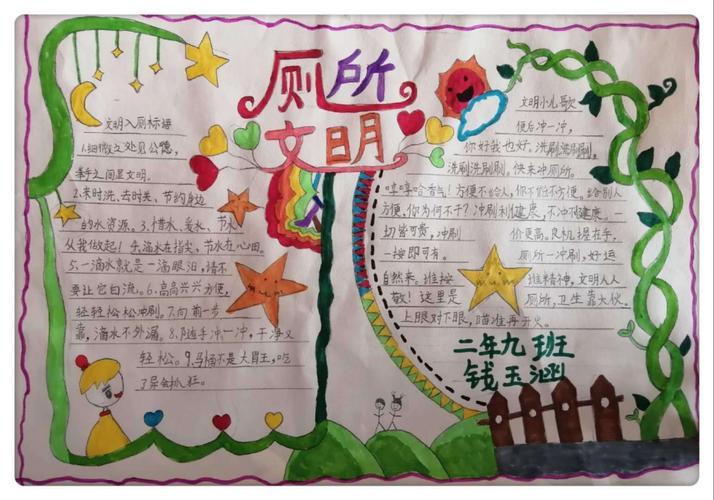 厕所
文明
文明入厕标语
1.细微之处见公德,
举手之间显文明。
2.来时洗、去时关、节约身边
的水资源。3.惜水、爱水、节水
从我做起! 4.滴水在指尖,节水在心田。
5.一滴水就是一滴眼泪,请不
要让它白流。6.高高兴兴方便,
轻轻松松冲刷。7.向前一步
靠,滴水不外漏。8.随手冲一冲,干净又
轻松。9.马桶不是大胃王,吃
了异会抓狂。
文明小儿歌
便后冲一冲,
你好我也好,洗刷洗刷刷,
洗刷洗刷刷,快来冲厕所。
哈气!方便不给人,你不怕不方便。给别人
方便,你为何不干?冲刷利健康,不冲不健康。一
切皆可贵,冲刷
价更高。良机握在手,
一按即可有。
厕所一冲刷,好运
自然来。谁按
谁精神,文明人人
敬!这里是
厕所,卫生靠大伙。
上眼对下眼,瞄准再开火。
二年九班
钱玉涵